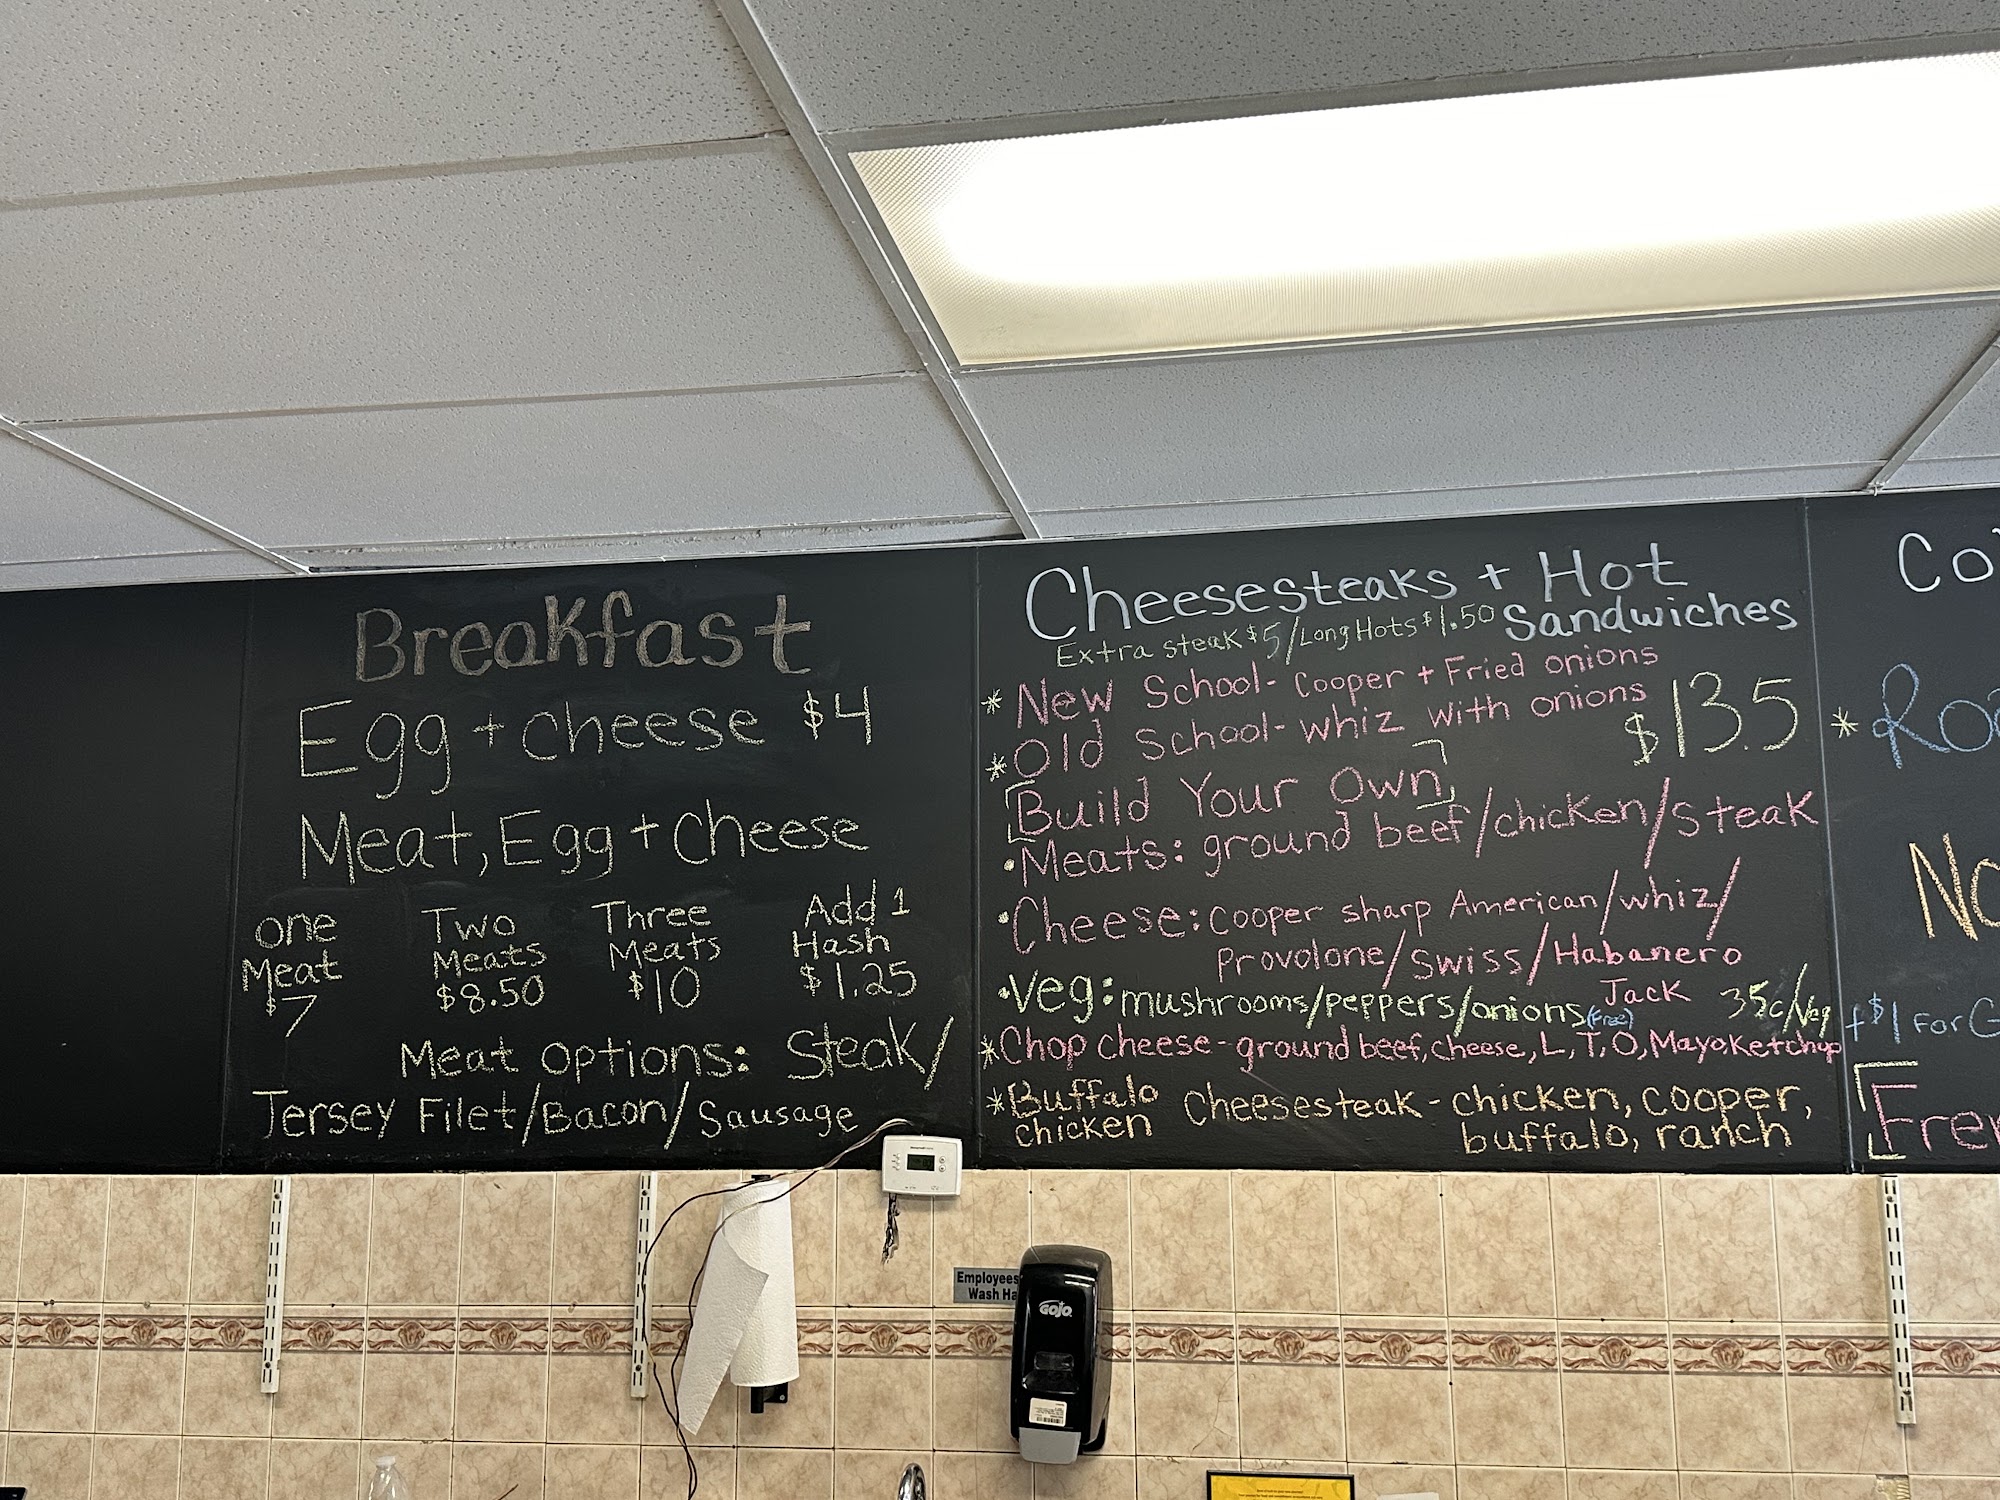 Breakfast
Egg + cheese $4
Meat, Egg + Cheese
one Meat $7
Two Meats $8.50
Three Meats $10
Add 1 Hash $1.25
Meat options: Steak/
Jersey Filet/Bacon/Sausage
Cheesesteaks + Hot
Sandwiches
Extra steak $5/Long Hots $1.50
* New School- Cooper + Fried onions
* Old School- whiz with onions
$13.5
[Build Your Own]
• Meats: ground beef/chicken/steak
• Cheese: cooper sharp American/whiz/
Provolone/Swiss/Habanero
Jack
• Veg: mushrooms/peppers/onions (Free) 35c/Veg
* Chop cheese - ground beef, cheese, L, T, O, Mayo, Ketchup
* Buffalo chicken Cheesesteak - chicken, cooper,
buffalo, ranch
Co
* Ro
No
+$1 For G
Fre
Employees
Wash Ha
GOJO